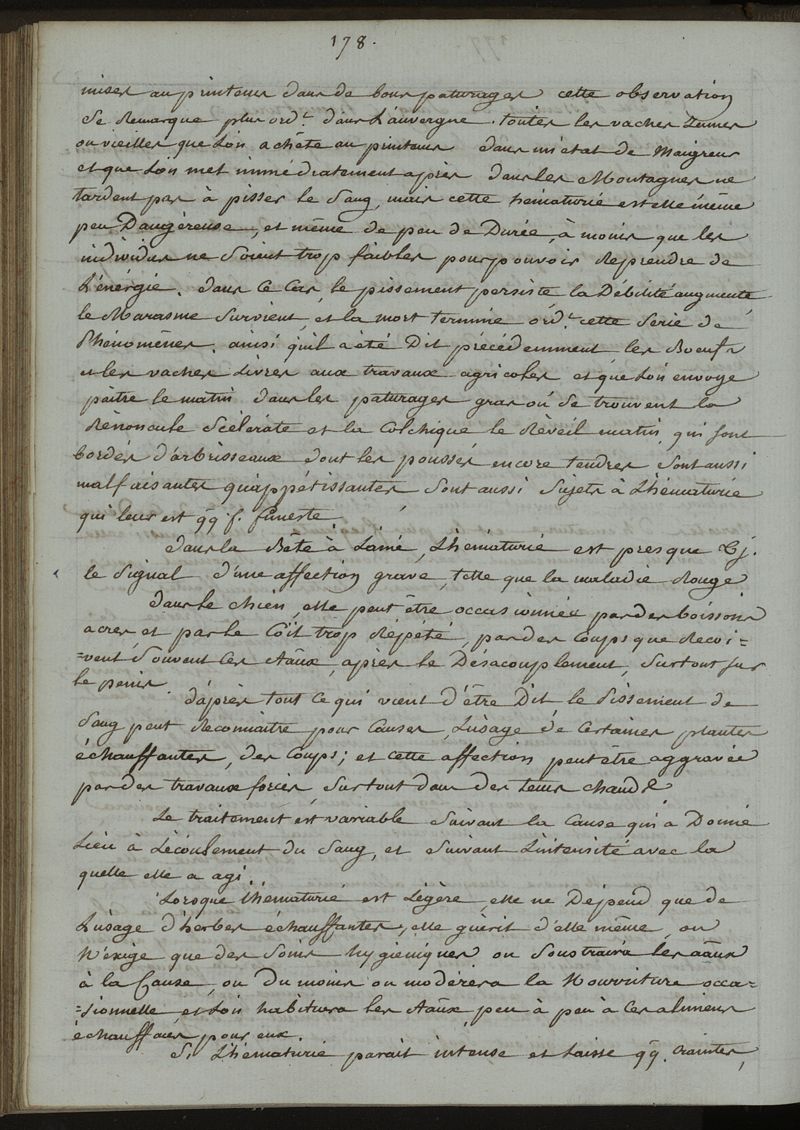 178.
mises au printems dans de bons paturages cette observation
se Remarque plus ord.t dans L'auvergne. toutes les vaches Jeunes
ou vieilles que L'on achète au printems dans un état de Maigreur
et que L'on met immédiatement après dans les Montagnes ne
tardent pas à pisser le Sang, mais cette hématurie est elle même
peu Dangéreuse, et même de peu de Durée, à moins que les
individus ne Soient trop faibles pour pouvoir Reprendre de
L'énérgie. dans Ce Cas, le pissement persiste la Débilité augmente
le Marasme Survient, et la mort termine ord.t cette Serie de
Phénomênes. ainsi qu'il a été Dit précédemment les Boeufs
et les vaches Livrés aux travaux agricoles et que L'on envoye
paître le matin dans les paturages gras où Se trouvent la
Rénoncule Scélérate et la Colchique le Rèveil matin, qui Sont
bordés d'arbrisseaux dont les pousses encore tendres Sont aussi
malfaisantes qu'appétissantes Sont aussi Sujets à L'hématurie
qui leur est qq. f. funeste.
dans la Bête à Laine, L'hématurie est presque
le Signal d'une affection grave, telle que la maladie Rouge
Dans le chien, elle peut être occasionnée par des boissons
acres, et par le Coït trop Répété, par des Coups que Reçoi=
=vent Souvent Ces Aāux après le Désacouplement, Surtout Sur
le penis.
d'après tout Ce qui vient d'être Dit, le Pissement de
Sang peut Reconnaitre pour Causes, L'usage de Certaines plantes
échauffantes, des Coups; et cette affection peut être aggravée
par des travaux forcés, Surtout dans des tems chauds &
Le traitement est variable Suivant la Cause qui a Donné
Lieu à L'écoulement du Sang, et Suivant L'intensité avec la
quelle elle a agi.
Lorsque L'hématurie est Légère, elle ne Dépend que de
L'usage d'herbes échauffantes, elle guérit d'elle même, ou
N'exige que des Soins hygiéniques on Soustraira les aāux
à la Cause, ou Du moins on modérera la Nourriture occa=
=sionnelle et L'on habituera les Aāux peu à peu à Ces alimens
échauffans pour eux.
Si L'hématurie parait intense et Laisse qq. Craintes,